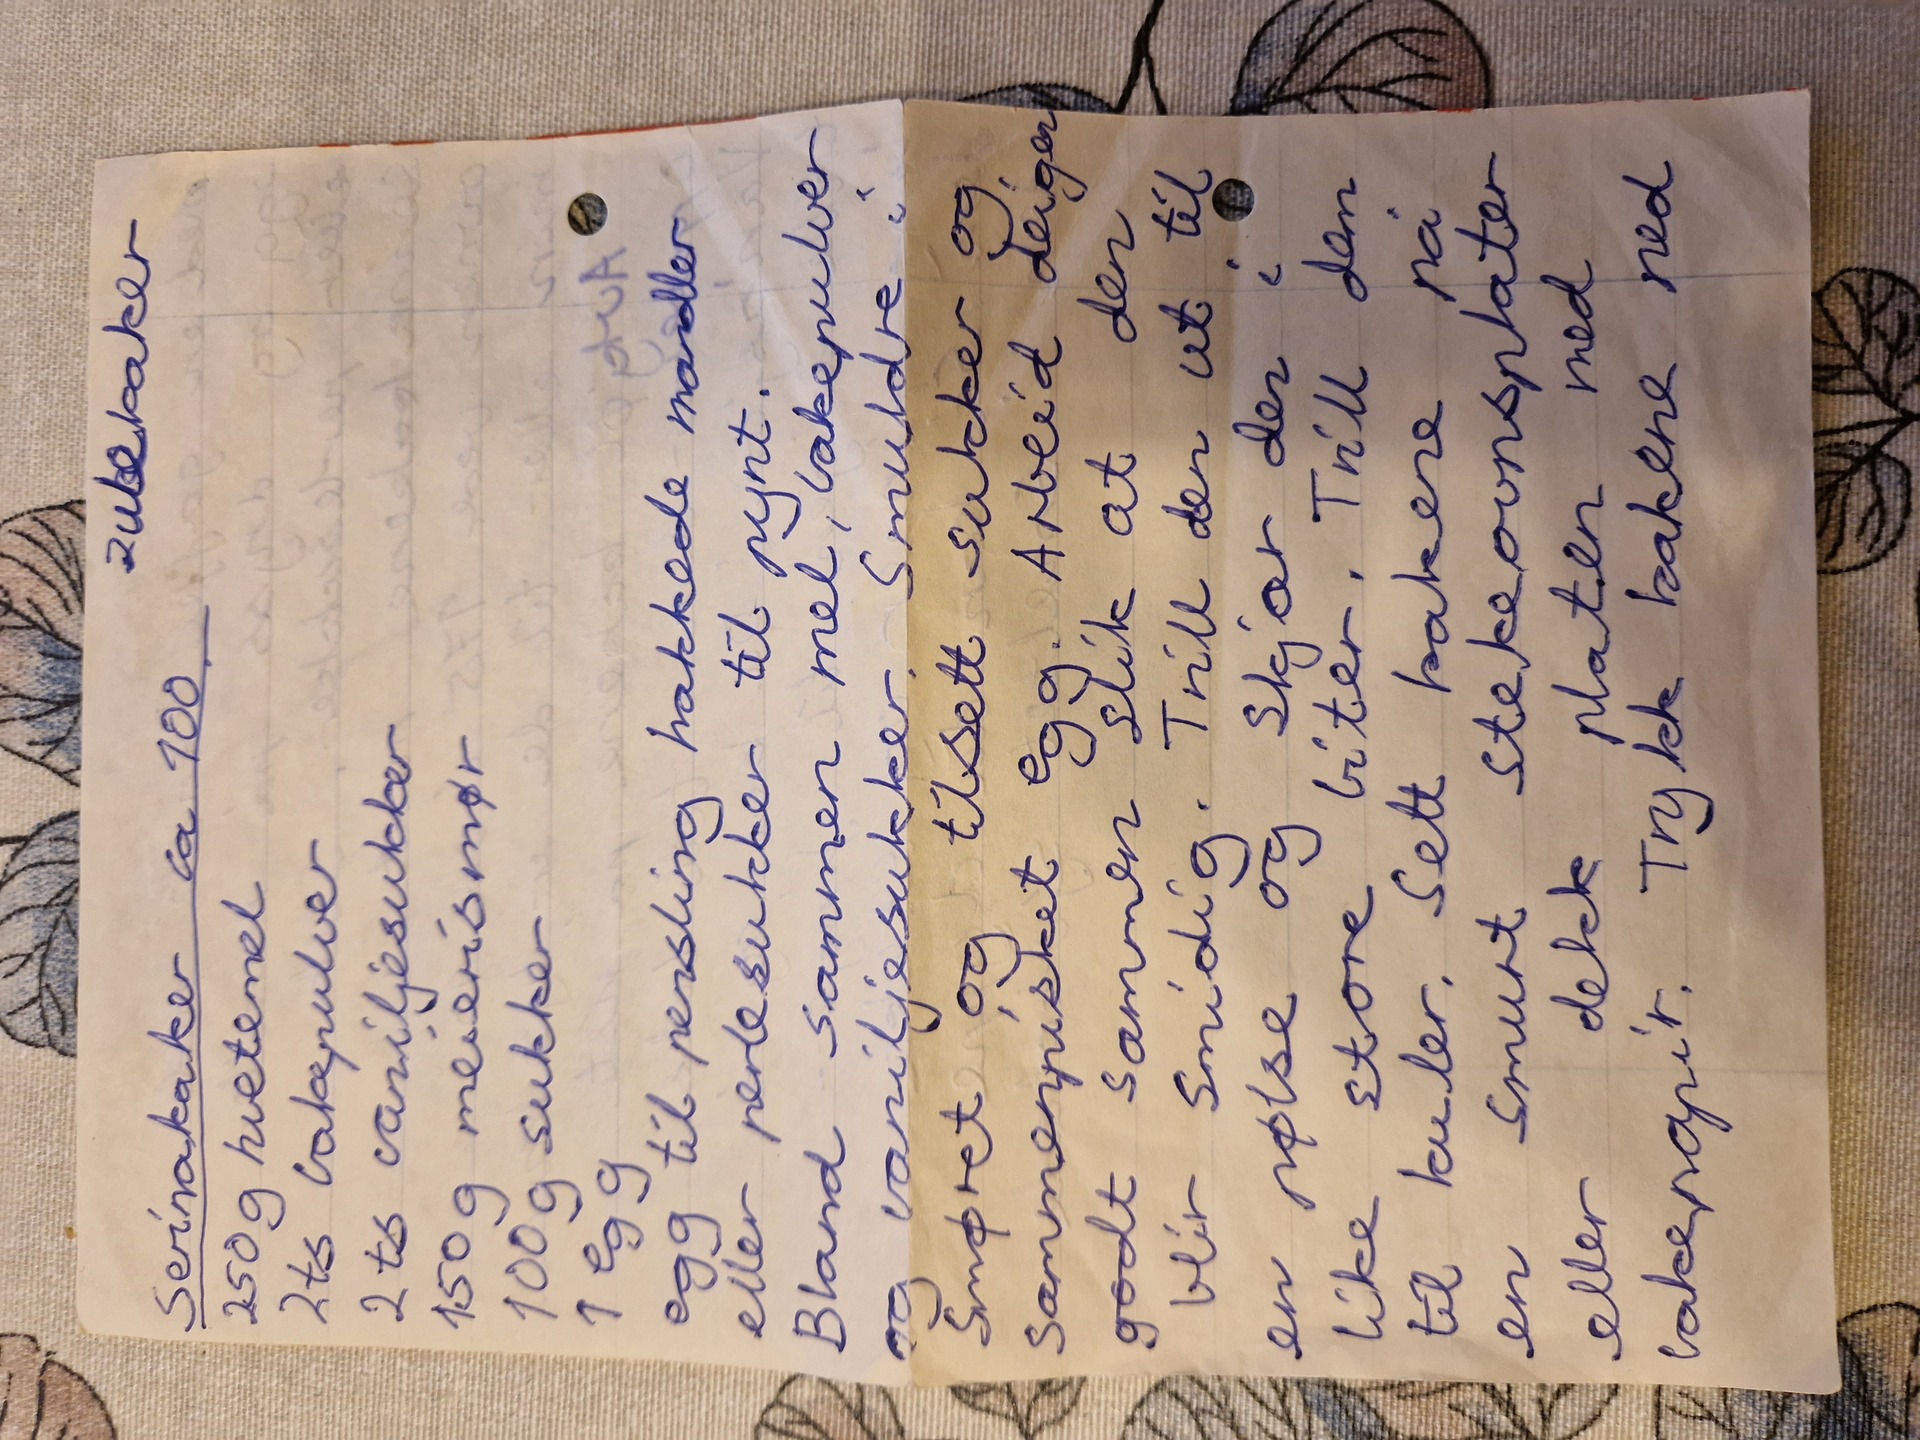 kaker
Serinakaker ca 100.
250g hvetemel
2ts bakepulver
2 ts vaniljesukker
150g meierismør
100g sukker
1 egg
egg til pensling hakkede mandler
eller perlesukker til pynt.
Bland sammen mel, bakepulver
og vaniljesukker. Smuldre i
Smøret og tilsett sukker og
sammenpisket egg. Arbeid deigen
godt sammen slik at den
blir smidig. Trill den ut til
en pølse og skjær den i
like store biter. Trill dem
til kuler. Sett kakene på
en smurt stekeovnsplater
eller dekk platen med
bakepapir. Trykk kakene ned